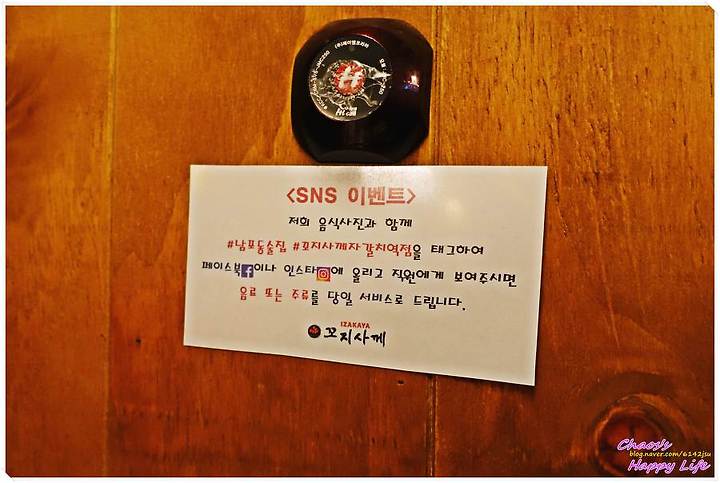 (주)제이엠코리아
<SNS 이벤트>
저희 음식사진과 함께
#남포동술집 #꼬지사께자갈치역점을 태그하여
페이스북f이나 인스타에 올리고 직원에게 보여주시면
음료 또는 주류를 당일 서비스로 드립니다.
IZAKAYA
꼬지사께
Chaos's
blog.naver.com/6142jsu
Happy Life